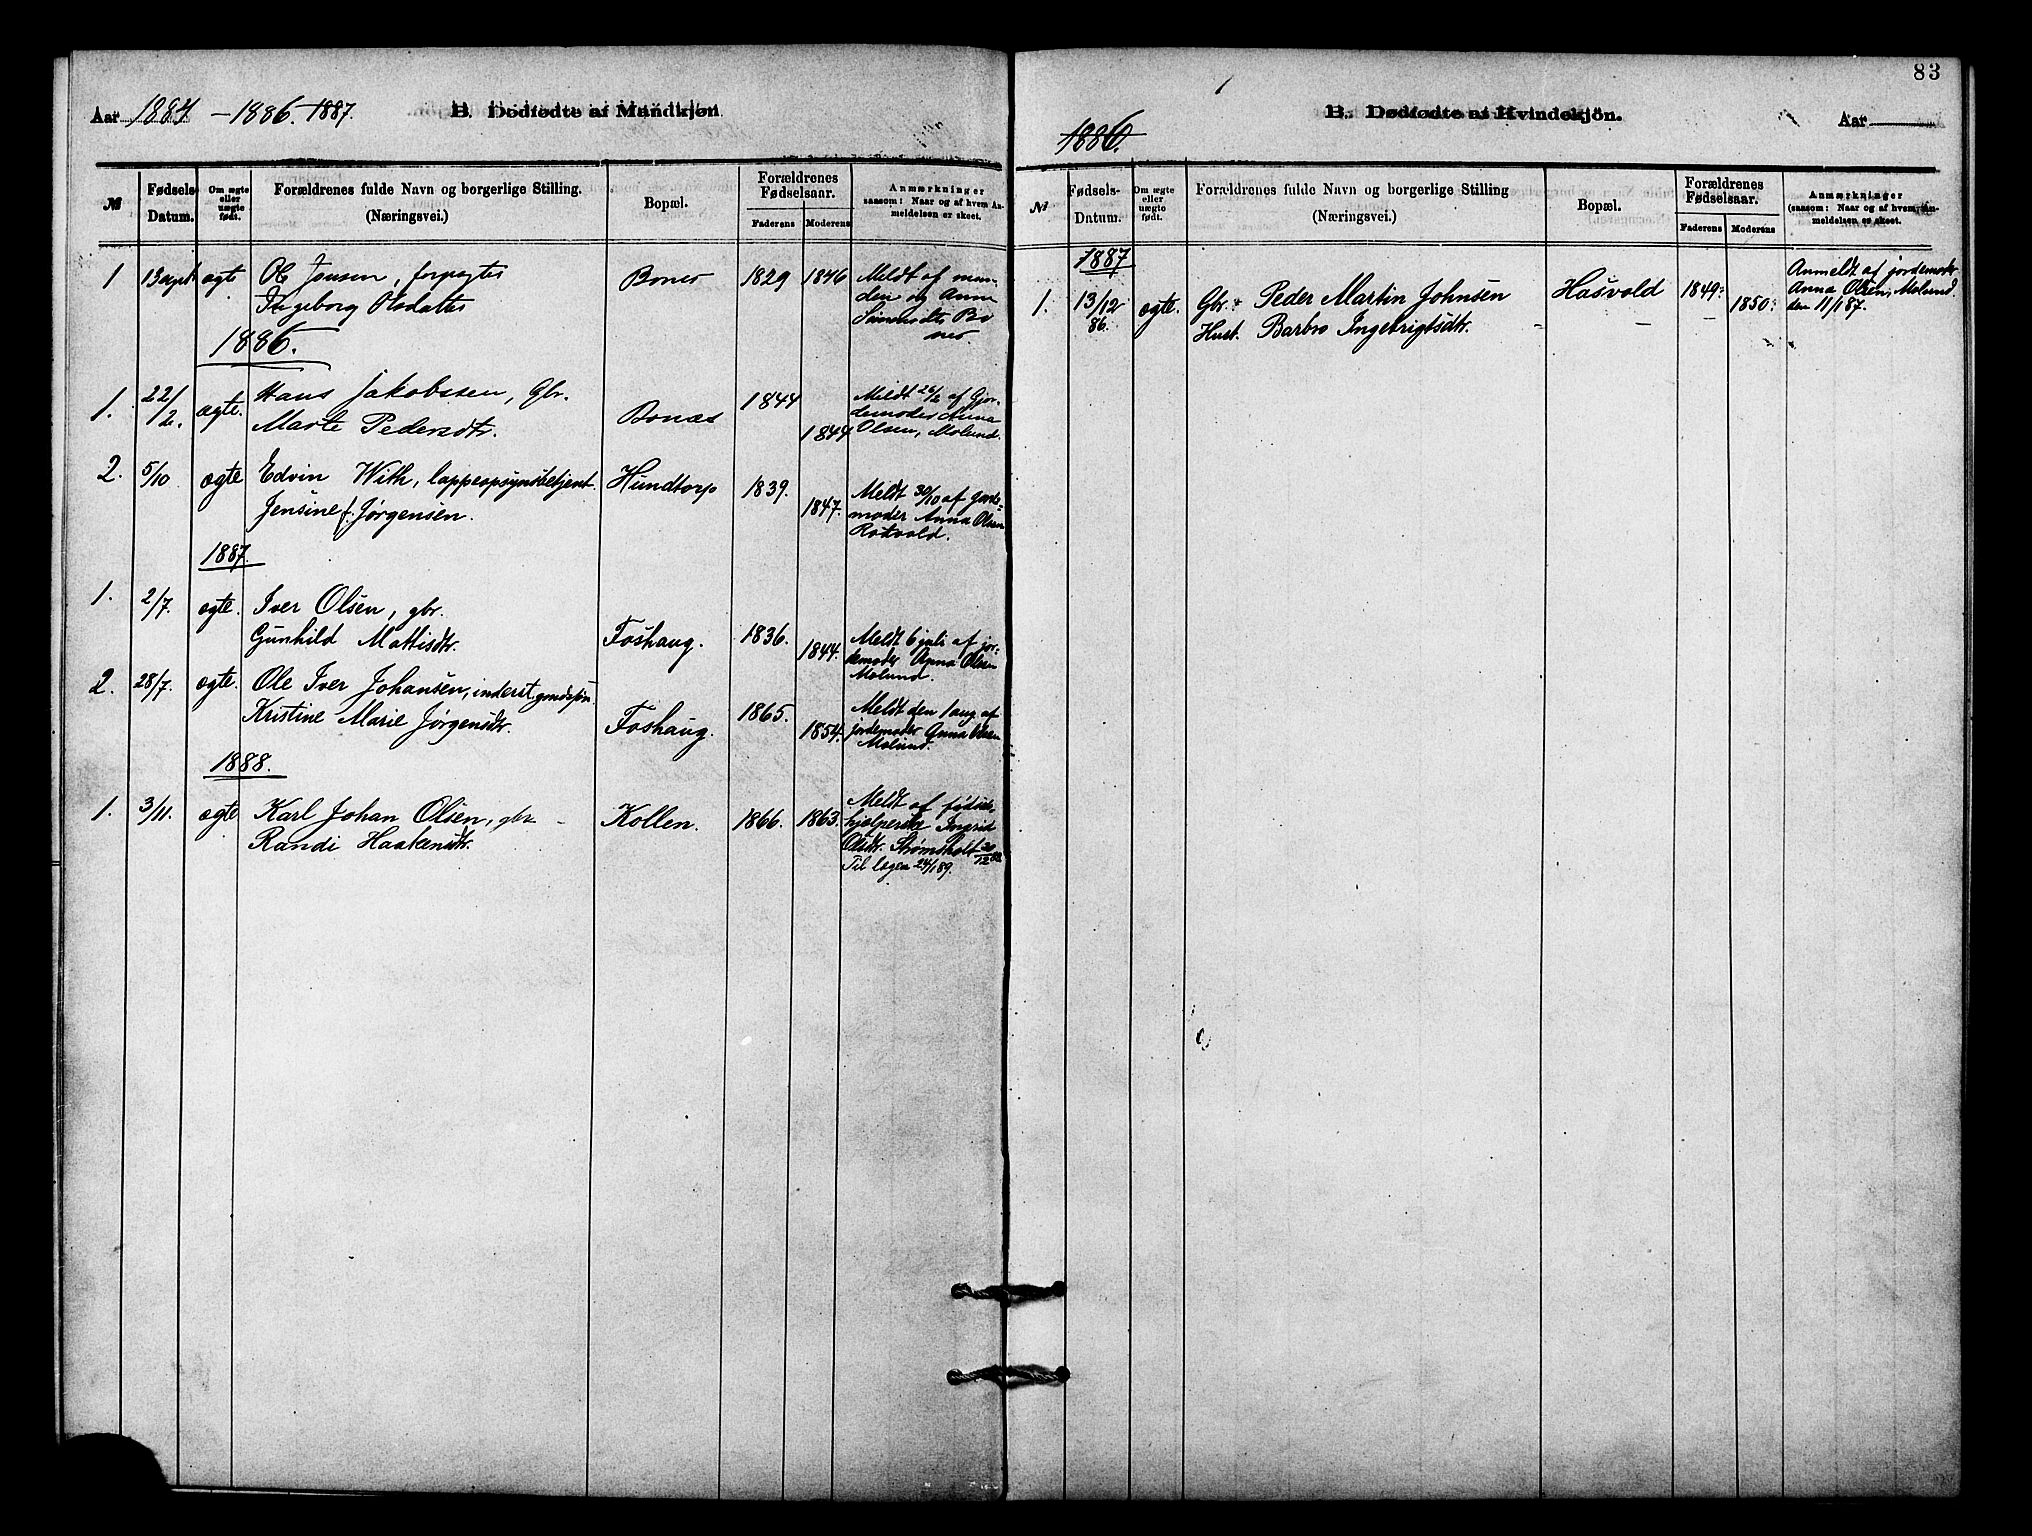 83
Aar 1884 - 1886. 1887. B. Dødfødte af Mandkjøn
№ Fødsels Datum. Om ægte eller uægte født. Forældrenes fulde Navn og borgerlige Stilling. (Næringsvei.) Bopæl. Forældrenes Fødselsaar. Faderens Moderens Anmærkninger saasom: Naar og af hvem Anmeldelsen er skeet.
1 13 ægte Ole Jensen, forpagter Bones 1829 1846 Meldt af man-
Ingeborg Olsdatter den og Anne
1886.
1. 22/2. ægte. Hans Jakobssen, Gbr. Bonæs 1844 Meldt 26/2 af Gjor-
Marte Pedersdtr. 1844 demoder Anna
Olsen, Molund.
2. 5/10 ægte Edvin With, lappeopsynsbetjent. Hundtorp 1839. Meldt 30/10 af jorde-
Jensine f. Jørgensen. 1847. moder Anna Olsen
1887.
1. 2/7. ægte. Iver Olsen, gbr.
Gunhild Mattisdtr. Foshaug. 1836. 1844. Meldt 6 juli af jor-
demoder Anna Olsen
Molund.
2. 28/7. ægte. Ole Iver Johansen, inderst, Foshaug. 1865. Meldt den 1 aug af
Kristine Marie Jørgensdtr. 1854. jordemoder Anna Olsen
Molund.
1888.
1. 3/11. ægte Karl Johan Olsen, gbr Kollen. 1866. 1863. Meldt af fødsels-
Randi Haakensdtr. hjælperske Ingrid
Olsdtr. Strømsholt 20/12 88
Til lægen 24/1 89.
B. Dødfødte af Kvindekjön. Aar
1886.
№ Fødsels- Datum. Om ægte eller uægte født. Forældrenes fulde Navn og borgerlige Stilling (Næringsvei.) Bopæl. Forældrenes Fødselsaar. Faderens Moderens Anmærkninger (saasom: Naar og af hvem Anmeldelsen er skeet.
1887
1. 13/12 86. ægte. Gbr. Peder Martin Johnsen Hasvold 1849. Anmeldt af jordemodr
Hust. Barbro Ingebrigtsdtr. - - 1850. Anna Olsen, Molund.
den 11/1 87.